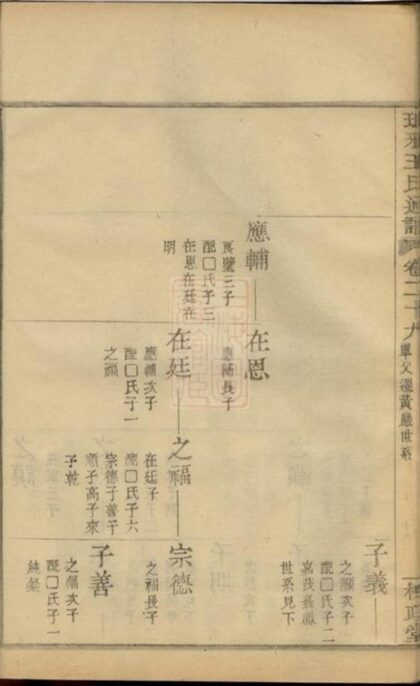 瑯琊王氏通譜
卷二十九
單父遷黃巖世系
子義
之灝次子
配□氏子二
高茂嘉鳳
世系見下
應輔
良璧三子
配□氏子三
在恩在廷在
明
在恩
應輔長子
在廷
應輔次子
配□氏子一
之福
之福
在廷子
配□氏子六
宗德子善子
順子高子來
子乾
宗德
之福長子
子善
之福次子
配□氏子一